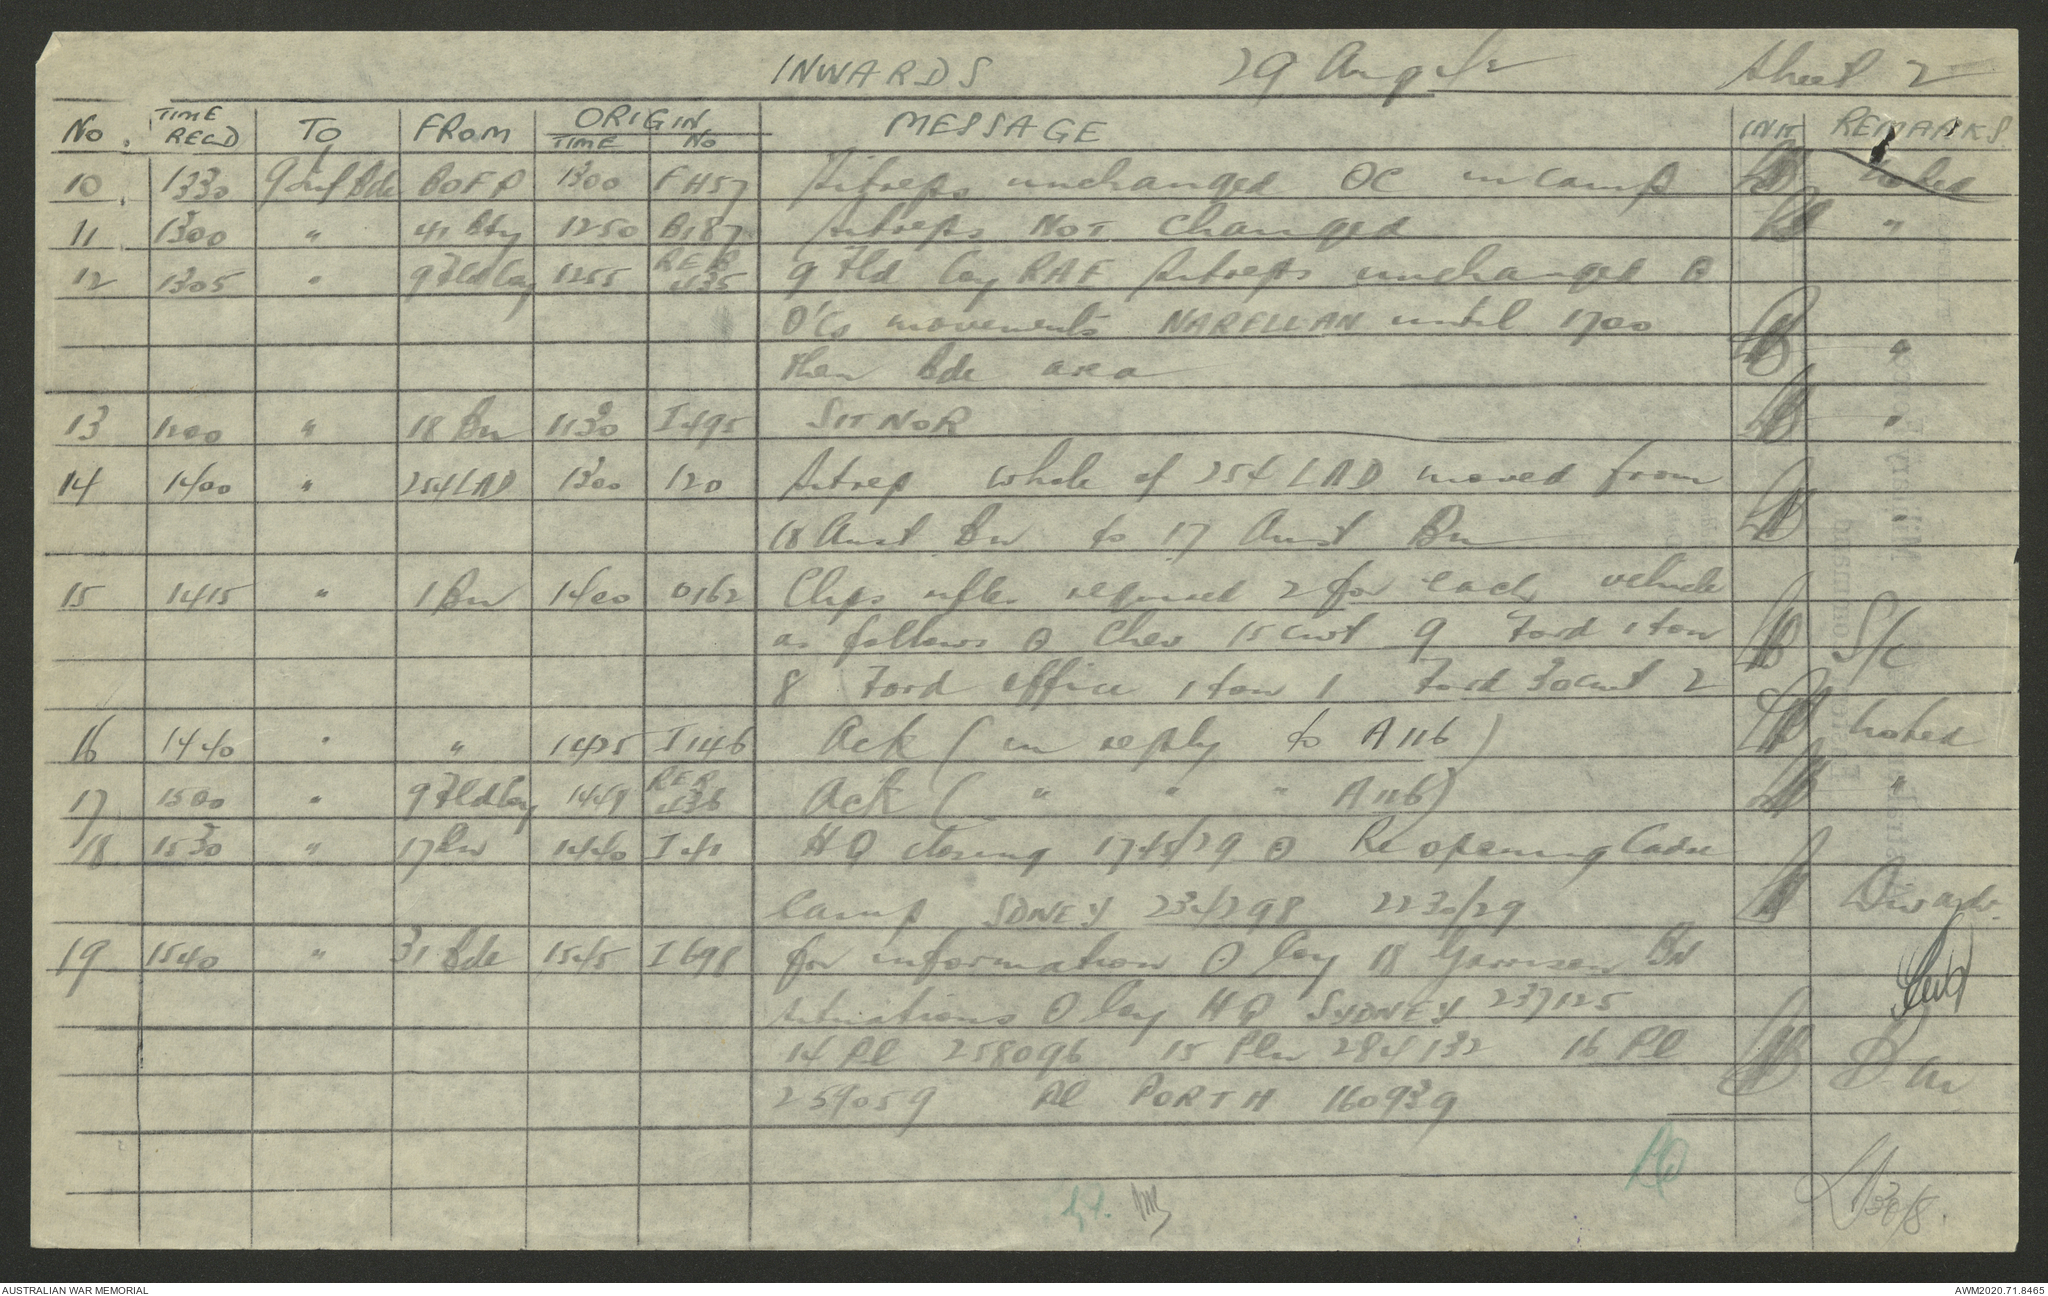 INWARDS 29 Aug 42 Sheet 2
No. TIME RECD TO FROM ORIGIN TIME No MESSAGE INIT. REMARKS
10. 1330 9 Inf Bde BOFP 1300 FH57 Sitreps unchanged OC in camp noted
11 1300 " 41 Bty 1250 B187 Sitreps NOT changed "
12 1305 " 9 Fld Coy 1255 RER 435 9 Fld Coy RAE Sitreps unchanged
O'Cs movements NARELLAN until 1700
then Bde area "
13 1200 " 18 Bn 1130 I495 SITNOR "
14 1400 " 254 LAD 1300 120 Sitrep whole of 254 LAD moved from
18 Aust Bn to 17 Aust Bn "
15 1415 " 1 Bn 1400 O162 Clips rifles required 2 for each vehicle
as follows Chev 15 cwt 9 Ford 1 ton
8 Ford office 1 ton 1 Ford 30 cwt 2 S/C
16 1440 " " 1425 I146 Ack (in reply to A116) noted
17 1500 " 9 Fld Coy 1449 RER 436 Ack ( " " " A116) "
18 1530 " 17 Bn 1440 I41 HQ closing 1745/29 Reopening
Camp SDNEY 234298 2230/29
19 1540 " 31 Bde 1545 I698 for information Coy 18 Garrison Bn
situations Coy HQ SYDNEY 237125
14 Pl 258096 15 Pln 284132 16 Pl
259059 Pl PORTH 160939
30/8.
AUSTRALIAN WAR MEMORIAL AWM2020.71.8465